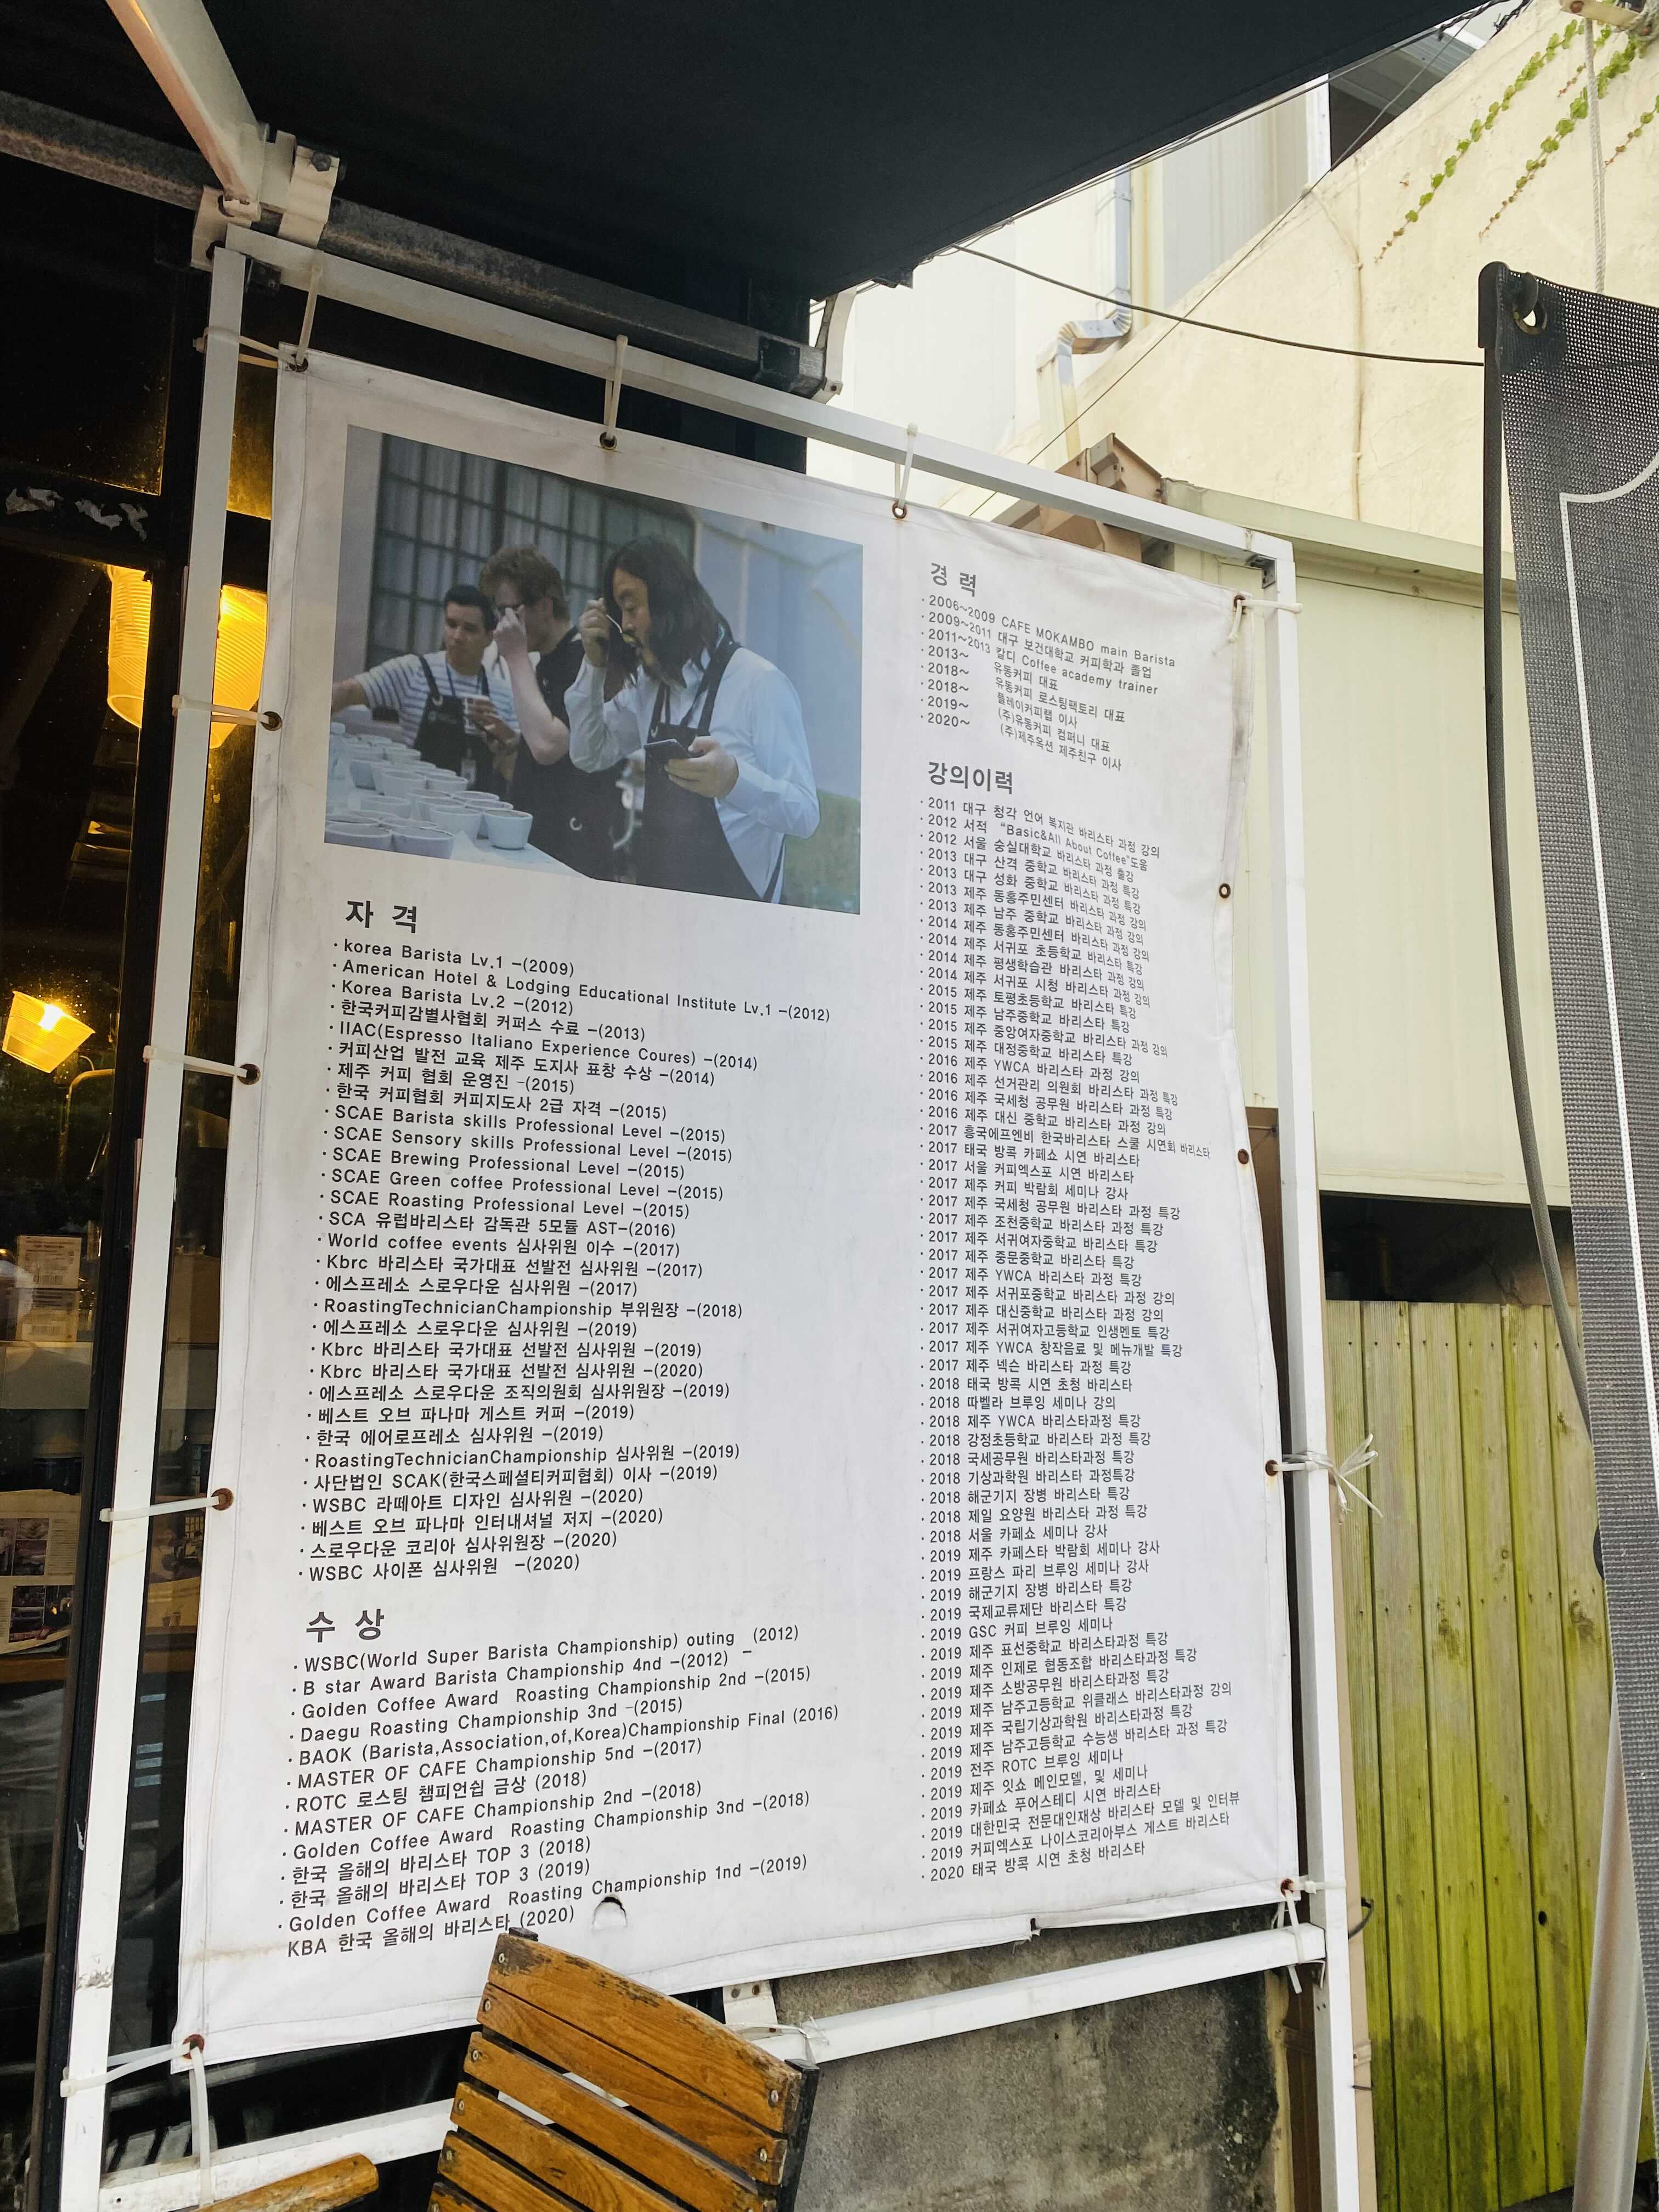 자 격
· korea Barista Lv.1 -(2009)
· American Hotel & Lodging Educational Institute Lv.1 -(2012)
· Korea Barista Lv.2 -(2012)
· 한국커피감별사협회 커퍼스 수료 -(2013)
· IIAC(Espresso Italiano Experience Coures) -(2014)
· 커피산업 발전 교육 제주 도지사 표창 수상 -(2014)
· 제주 커피 협회 운영진 -(2015)
· 한국 커피협회 커피지도사 2급 자격 -(2015)
· SCAE Barista skills Professional Level -(2015)
· SCAE Sensory skills Professional Level -(2015)
· SCAE Brewing Professional Level -(2015)
· SCAE Green coffee Professional Level -(2015)
· SCAE Roasting Professional Level -(2015)
· SCA 유럽바리스타 감독관 5모듈 AST-(2016)
· World coffee events 심사위원 이수 -(2017)
· Kbrc 바리스타 국가대표 선발전 심사위원 -(2017)
· 에스프레소 스로우다운 심사위원 -(2017)
· RoastingTechnicianChampionship 부위원장 -(2018)
· 에스프레소 스로우다운 심사위원 -(2019)
· Kbrc 바리스타 국가대표 선발전 심사위원 -(2019)
· Kbrc 바리스타 국가대표 선발전 심사위원 -(2020)
· 에스프레소 스로우다운 조직의원회 심사위원장 -(2019)
· 베스트 오브 파나마 게스트 커퍼 -(2019)
· 한국 에어로프레소 심사위원 -(2019)
· RoastingTechnicianChampionship 심사위원 -(2019)
· 사단법인 SCAK(한국스페셜티커피협회) 이사 -(2019)
· WSBC 라떼아트 디자인 심사위원 -(2020)
· 베스트 오브 파나마 인터내셔널 저지 -(2020)
· 스로우다운 코리아 심사위원장 -(2020)
· WSBC 사이폰 심사위원 -(2020)
수 상
· WSBC(World Super Barista Championship) outing _(2012)
· B star Award Barista Championship 4nd -(2012) -
· Golden Coffee Award Roasting Championship 2nd -(2015)
· Daegu Roasting Championship 3nd -(2015)
· BAOK (Barista,Association,of,Korea)Championship Final (2016)
· MASTER OF CAFE Championship 5nd -(2017)
· ROTC 로스팅 챔피언쉽 금상 (2018)
· MASTER OF CAFE Championship 2nd -(2018)
· Golden Coffee Award Roasting Championship 3nd -(2018)
· 한국 올해의 바리스타 TOP 3 (2018)
· 한국 올해의 바리스타 TOP 3 (2019)
· Golden Coffee Award Roasting Championship 1nd -(2019)
KBA 한국 올해의 바리스타 (2020)
경 력
· 2006~2009 CAFE MOKAMBO main Barista
· 2009~2011 대구 보건대학교 커피학과 졸업
· 2011~2013 칼디 Coffee academy trainer
· 2013~ 유동커피 대표
· 2018~ 유동커피 로스팅팩토리 대표
· 2018~ 플레이커피랩 이사
· 2019~ (주)유동커피 컴퍼니 대표
· 2020~ (주)제주옥션 제주친구 이사
강의이력
· 2011 대구 청각 언어 복지관 바리스타 과정 강의
· 2012 서적 "Basic&All About Coffee"도움
· 2012 서울 숭실대학교 바리스타 과정 출강
· 2013 대구 산격 중학교 바리스타 과정 특강
· 2013 대구 성화 중학교 바리스타 과정 특강
· 2013 제주 동홍주민센터 바리스타 과정 강의
· 2013 제주 남주 중학교 바리스타 과정 강의
· 2014 제주 동홍주민센터 바리스타 과정 강의
· 2014 제주 서귀포 초등학교 바리스타 특강
· 2014 제주 평생학습관 바리스타 과정 강의
· 2014 제주 서귀포 시청 바리스타 과정 강의
· 2015 제주 토평초등학교 바리스타 특강
· 2015 제주 남주중학교 바리스타 특강
· 2015 제주 중앙여자중학교 바리스타 과정 강의
· 2015 제주 대정중학교 바리스타 특강
· 2016 제주 YWCA 바리스타 과정 강의
· 2016 제주 선거관리 의원회 바리스타 과정 특강
· 2016 제주 국세청 공무원 바리스타 과정 특강
· 2016 제주 대신 중학교 바리스타 과정 강의
· 2017 흥국에프엔비 한국바리스타 스쿨 시연회 바리스타
· 2017 태국 방콕 카페쇼 시연 바리스타
· 2017 서울 커피엑스포 시연 바리스타
· 2017 제주 커피 박람회 세미나 강사
· 2017 제주 국세청 공무원 바리스타 과정 특강
· 2017 제주 조천중학교 바리스타 과정 특강
· 2017 제주 서귀여자중학교 바리스타 특강
· 2017 제주 중문중학교 바리스타 특강
· 2017 제주 YWCA 바리스타 과정 특강
· 2017 제주 서귀포중학교 바리스타 과정 강의
· 2017 제주 대신중학교 바리스타 과정 강의
· 2017 제주 서귀여자고등학교 인생멘토 특강
· 2017 제주 YWCA 창작음료 및 메뉴개발 특강
· 2017 제주 넥슨 바리스타 과정 특강
· 2018 태국 방콕 시연 초청 바리스타
· 2018 따벨라 브루잉 세미나 강의
· 2018 제주 YWCA 바리스타과정 특강
· 2018 강정초등학교 바리스타 과정 특강
· 2018 국세공무원 바리스타과정 특강
· 2018 기상과학원 바리스타 과정특강
· 2018 해군기지 장병 바리스타 특강
· 2018 제일 요양원 바리스타 과정 특강
· 2018 서울 카페쇼 세미나 강사
· 2019 제주 카페스타 박람회 세미나 강사
· 2019 프랑스 파리 브루잉 세미나 강사
· 2019 해군기지 장병 바리스타 특강
· 2019 국제교류제단 바리스타 특강
· 2019 GSC 커피 브루잉 세미나
· 2019 제주 표선중학교 바리스타과정 특강
· 2019 제주 인제로 협동조합 바리스타과정 특강
· 2019 제주 소방공무원 바리스타과정 특강
· 2019 제주 남주고등학교 위클래스 바리스타과정 강의
· 2019 제주 국립기상과학원 바리스타과정 특강
· 2019 제주 남주고등학교 수능생 바리스타 과정 특강
· 2019 전주 ROTC 브루잉 세미나
· 2019 제주 잇쇼 메인모델, 및 세미나
· 2019 카페쇼 푸어스테디 시연 바리스타
· 2019 대한민국 전문대인재상 바리스타 모델 및 인터뷰
· 2019 커피엑스포 나이스코리아부스 게스트 바리스타
· 2020 태국 방콕 시연 초청 바리스타